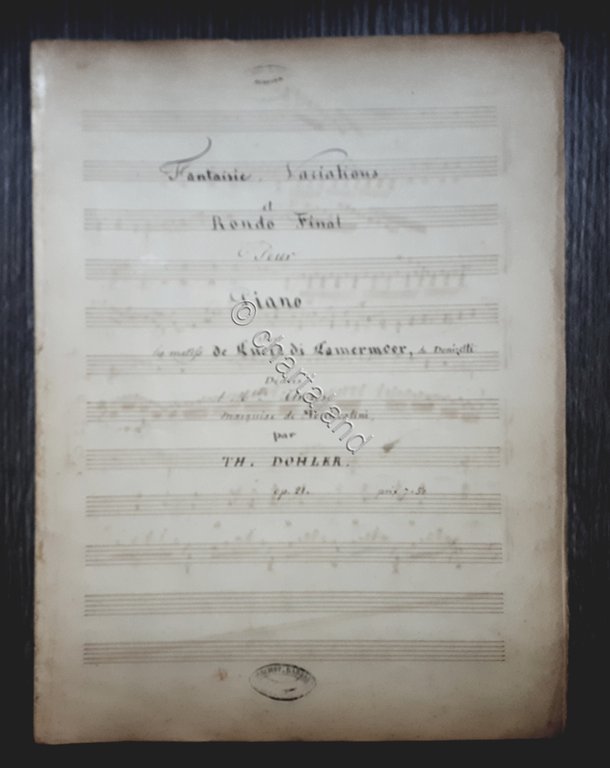 Fantaisie. Variations
et
Rondo Final
Pour
Piano
de Lucia di Lamermoor, de Donizetti
marquise de
par
TH. DOHLER.
op. 21. prix 7.50
© Chartaland